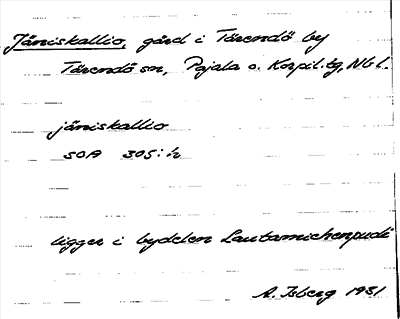 Jäniskallio, gård i Tärendö by
Tärendö sn, Pajala o. Korpil. tg, Nb l.
jäniskallio
SOA 305:h
ligger i bydelen
A. Isberg 1931